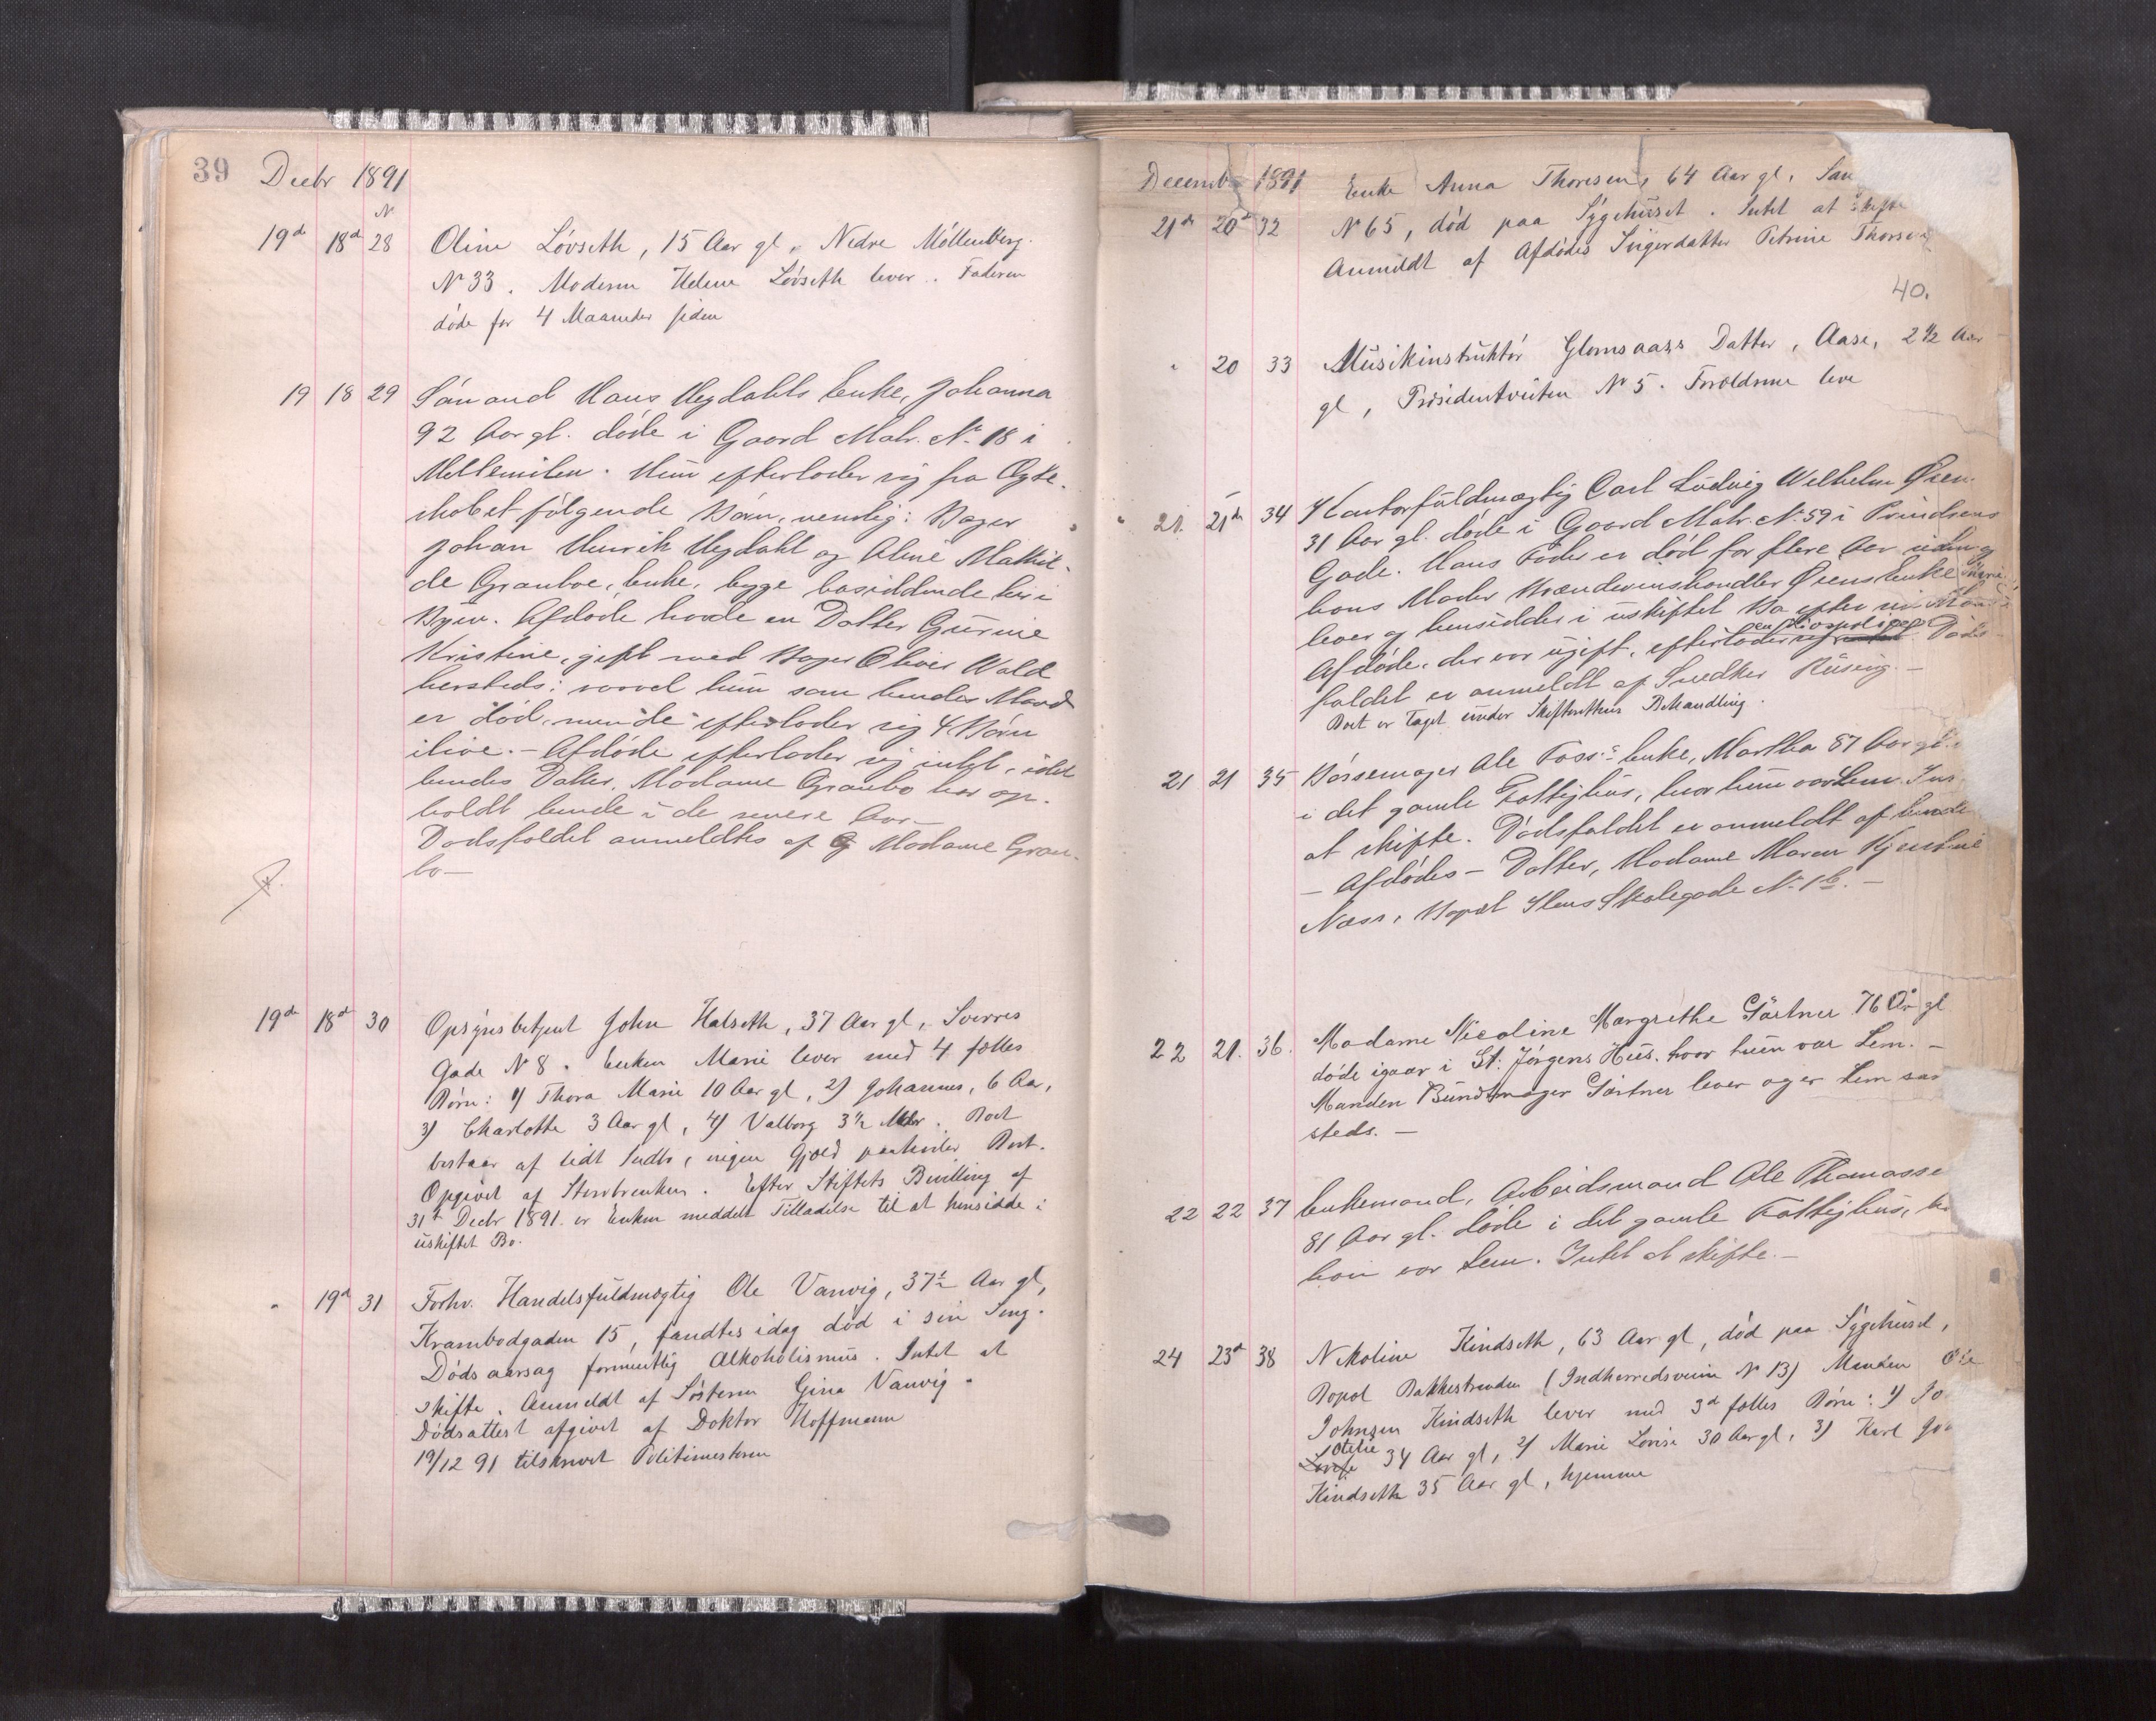 39 Decbr 1891
N
19de 18de 28 Oline Løvseth, 15 Aar gl. Nedre Møllenberg.
N 33. Moderen Helene Løvseth lever. Faderen
døde for 4 Maaneder siden
19 18 29 Sømand Hans Hegdahls Enke, Johanna
92 Aar gl. døde i Gaard Matr. No 18 i
Mellemilen. Hun efterlader sig fra Ægte-
skabet følgende Børn, nemlig: Bager
Johan Henrik Hegdahl og Aline Mathil-
de Granboe, Enke, begge bosiddende her i
Byen. Afdøde havde en Datter Gurine
Kristine, gift med Bager Oliver Wold
hersteds; saavel hun som hendes Mand
er død, men de efterlader sig 4 Børn
ilive. - Afdøde efterlader sig intet, idet
hendes Datter, Madame Granbo har op-
holdt hende i de senere Aar -
Dødsfaldet anmeldtes af Madame Gran-
bo -
19de 18de 30 Opsynsbetjent John Halseth, 37 Aar gl, Sverres
Gade N 8. Enken Marie lever med 4 fælles
Børn: 1) Thora Marie 10 Aar gl, 2) Johannes, 6 Aar,
3) Charlotte 3 Aar gl, 4) Valborg 3 1/2 Mdr. Boet
bestaar af lidt Indbo, ingen Gjæld paahviler Boet.
Opgivet af Stervbenken. Efter Stiftets Bevilling af
31te Decbr 1891 er Enken meddelt Tilladelse til at hensidde i
uskiftet Bo.
" 19de 31 Forhv. Handelsfuldmægtig Ole Vanvig, 37 1/2 Aar gl,
Krambodgaden 15, fandtes idag død i sin Seng.
Dødsaarsag formentlig Alkoholismus. Intet at
skifte. Anmeldt af Søsteren Gina Vanvig.
Dødsattest afgivet af Doktor Hoffmann
19/12 91 tilskrevet Politimesteren
Decemb 1891 Enke Anna Thoresen, 64 Aar gl, San
21de 20de 32 N 65, død paa Sygehuset. Intet at skifte
Anmeldt af Afdødes Svigerdatter Petrine Thorsen
40.
" 20 33 Musikinstruktør Glomsaass Datter, Aase, 2 1/2 Aar
gl, Præsidentveiten No 5. Forældrene leve
21. 21de 34 Kontorfuldmægtig Carl Ludvig Wilhelm Øien
31 Aar gl. døde i Gaard Matr. No 59 i Prindsens
Gade. Hans Fader er død for flere Aar siden og
hans Moder Brændevinshandler Øiens Enke Marie
lever og hensidder i uskiftet Bo efter sin Mand
Afdøde, der var ugift, efterlader en Livspolice. Døds-
faldet er anmeldt af Snedker Rusing. -
Boet er taget under Skifterettens Behandling.
21 21 35 Børsemager Ole Foss's Enke, Martha 87 Aar gl.
i det gamle Fattighus, hvor hun var Lem. Intet
at skifte. Dødsfaldet er anmeldt af hendes
- Afdødes - Datter, Madame Maren Kjerstine
Næss, Bopæl Ilens Skolegade No 1b. -
22 21. 36. Madame Nicoline Margrethe Gärtner 76 År gl
døde igaar i St. Jørgens Hus, hvor hun var Lem. -
Manden Buntmager Gärtner lever og er Lem sam
steds. -
22 22 37 Enkemand, Arbeidsmand Ole Thomasse
81 Aar gl. døde i det gamle Fattighus, hv
han var Lem. Intet at skifte. -
24 23de 38 Nikoline Kindseth, 63 Aar gl, død paa Sygehuset,
Bopæl Bakkestranden (Indherredsveien No 13) Manden Ole
Johnsen Kindseth lever med 3de fælles Børn: 1) Jo
Otelie
34 Aar gl, 2) Marie Lovise 30 Aar gl, 3) Karl Joh
Kindseth 35 Aar gl, hjemme